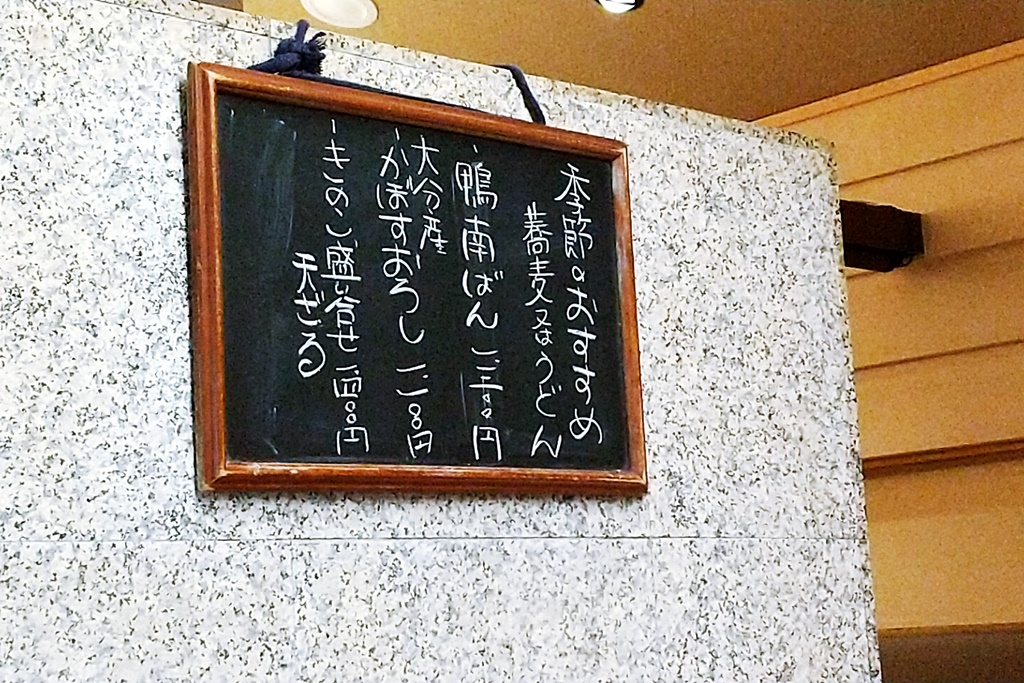 季節のおすすめ
蕎麦又はうどん
一鴨南ばん 二三〇〇円
大分産
一かぼすおろし 二一〇〇円
一きのこ盛り合せ 二四〇〇円
天ざる